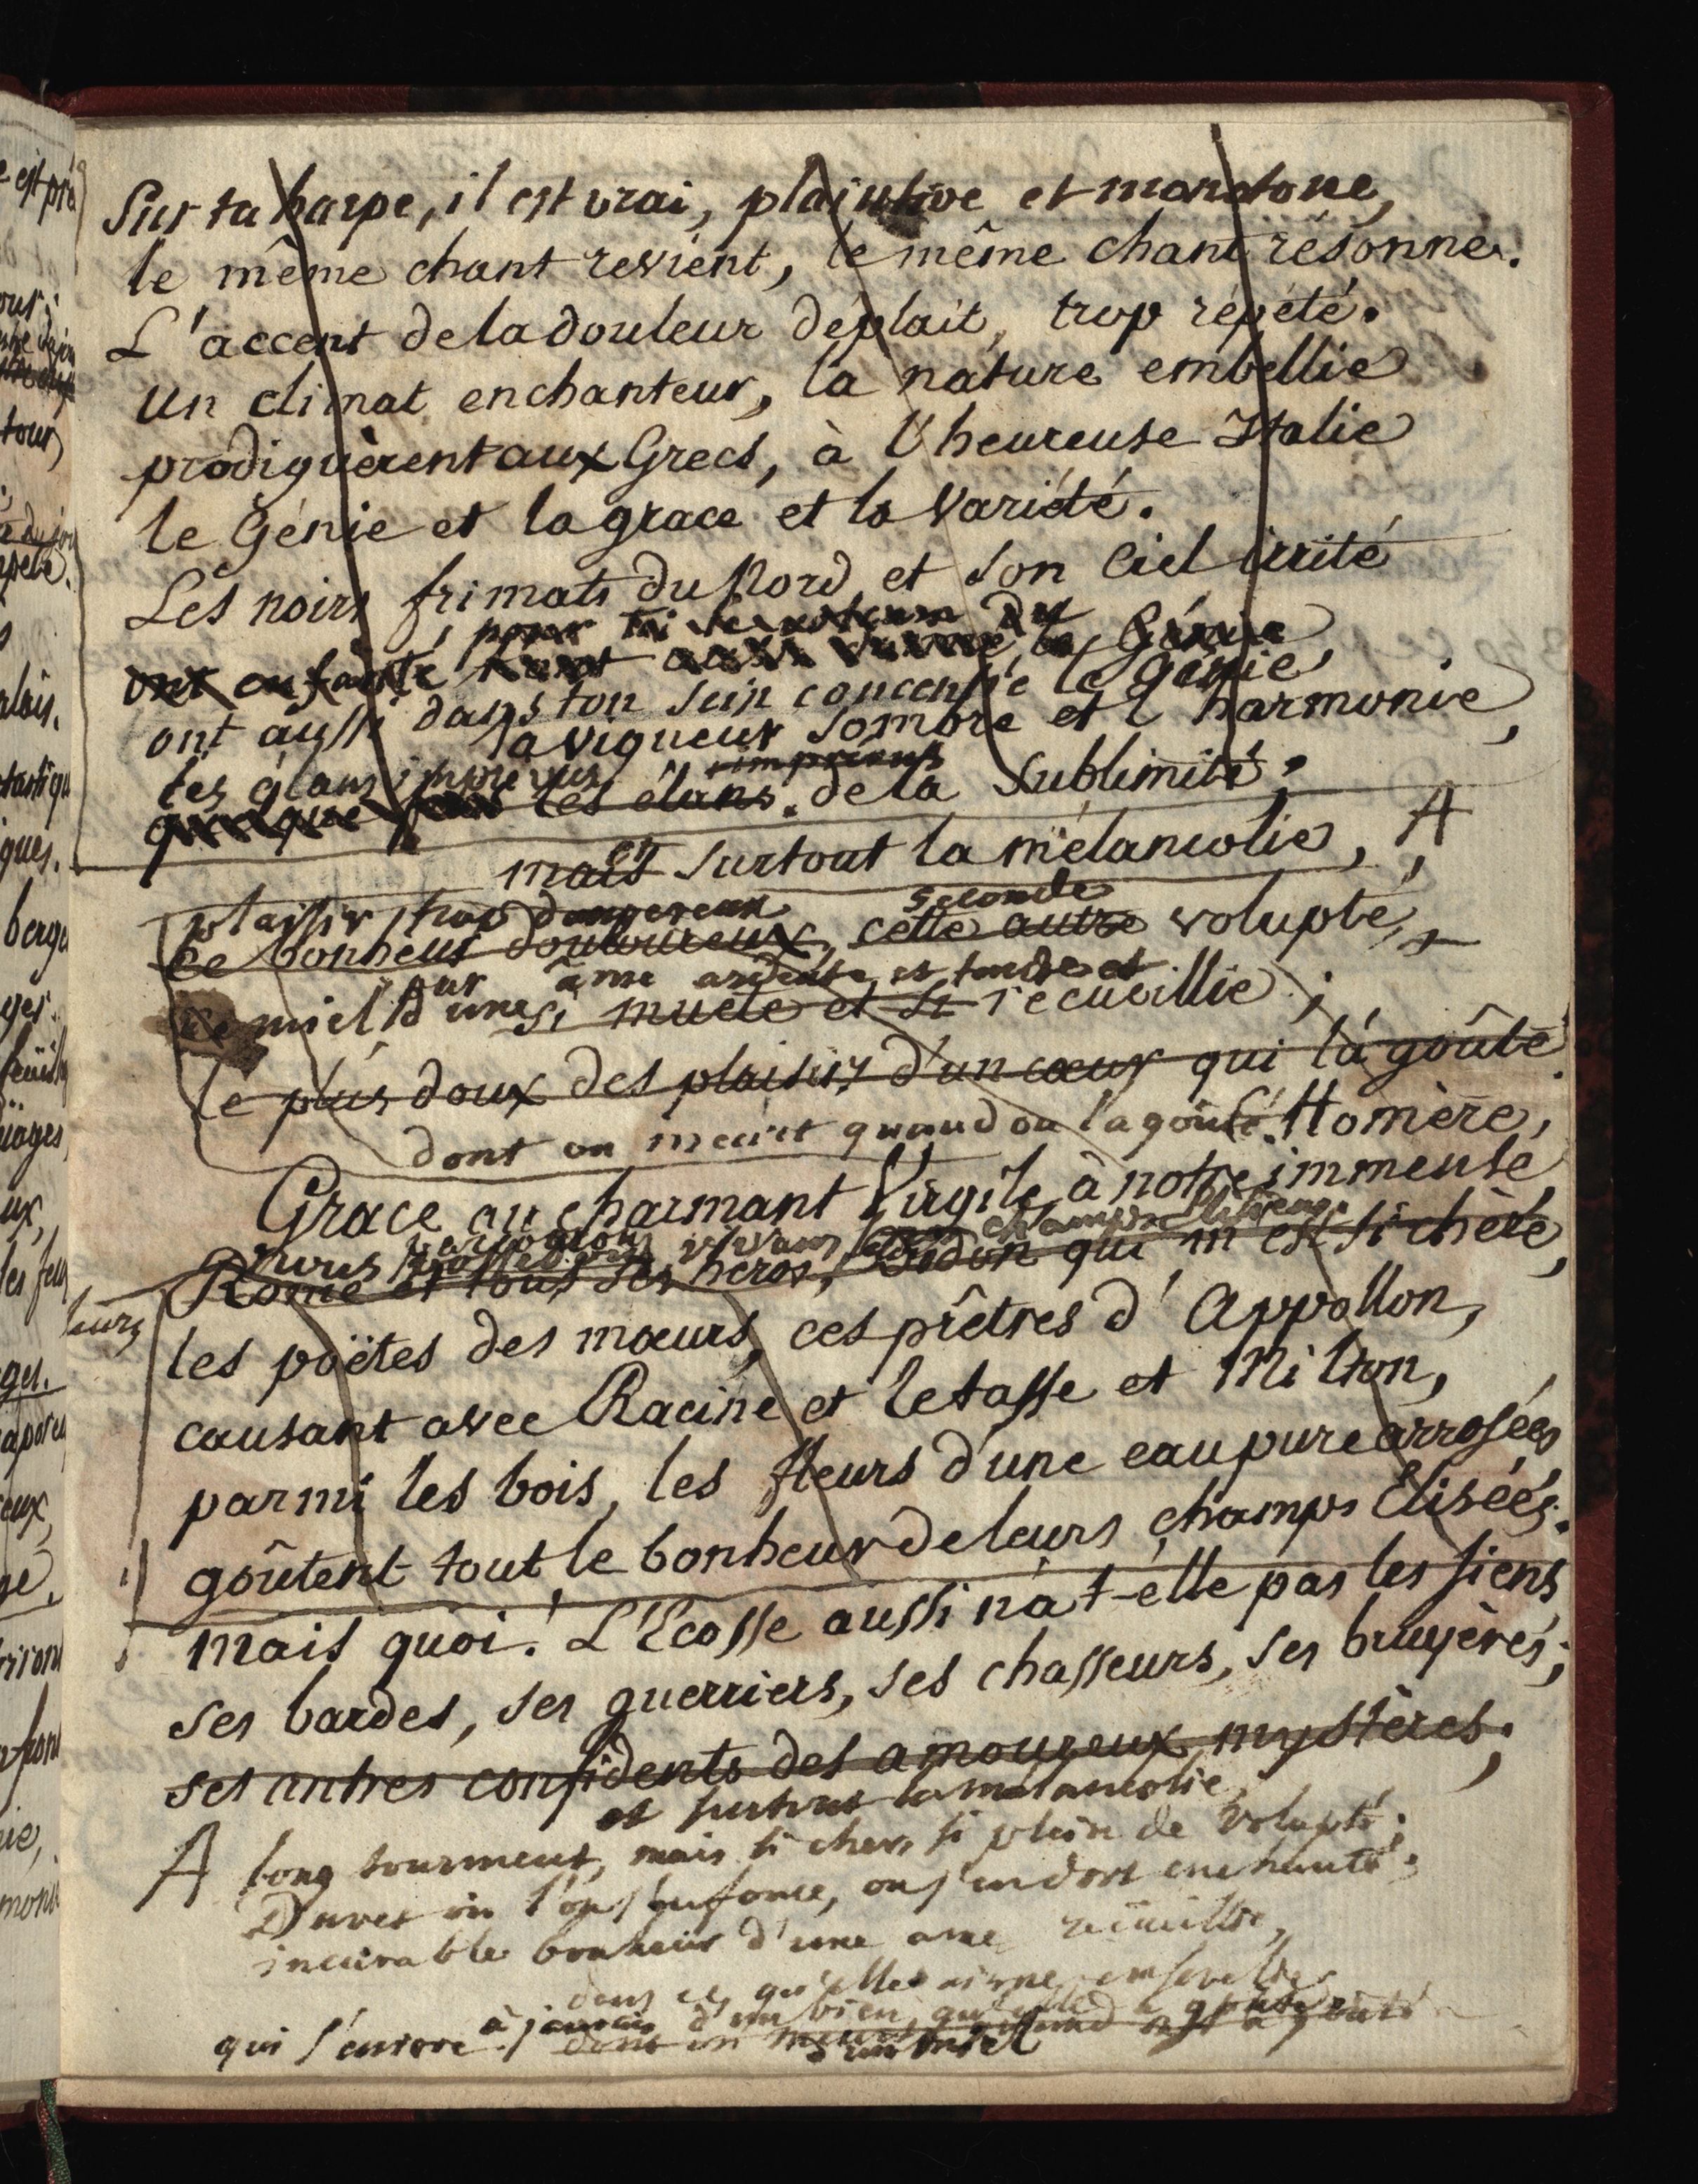 Sur ta harpe, il est vrai, plaintive et monotone,
le même chant revient, le même chant résonne.
L'accent de la douleur déplait, trop répété.
Un climat enchanteur, la nature embellie
prodiguèrent aux Grecs, à l'heureuse Italie
le Génie et la grace et la Variété.
Les noirs frimats du Nord, et son Ciel irrité
pour toi
ont enfanté le Génie
ont aussi dans ton sein concentré le génie
la vigueur sombre et l'harmonie,
tes élans imprevus imprévus
quelque fois les élans de la Sublimité.
mais et surtout la mélancolie, A
plaisir trop dangereux seconde
Ce bonheur douloureux, cette autre volupté,
pur âme ardente et tendre et
Ce miel d'une si muete et si recueillie;
le plus doux des plaisirs d'un cœur qui l'a goûté.
dont on meurt quand on l'a goûté. Homère,
Grace au charmant Virgile, à notre immense
vivans champs
Rome et tous ses heros, Didon qui m'est si chère,
leurs
les poëtes des mœurs, ces prêtres d'Appollon,
causant avec Racine et le tasse et Milton,
parmi les bois, les fleurs d'une eau pure arrosées,
goûtent tout le bonheur de leurs champs Elisées.
mais quoi! L'Ecosse aussi n'a t-elle pas les siens
ses bardes, ses guerriers, ses chasseurs, ses bruyères;
ses antres confidents des amoureux mystères.
et surtout la mélancolie,
A long tourment, mais si cher, si plein de volupté;
Duvet où l'on s'enfonce, on s'endort enchanté;
incurable bonheur d'une ame recueillie,
dans ce qu'elle aime ensevelie
à jamais d'un bien qu'elle a gouté
qui s'enivre dont on meurt quand on l'a gouté
d'un miel